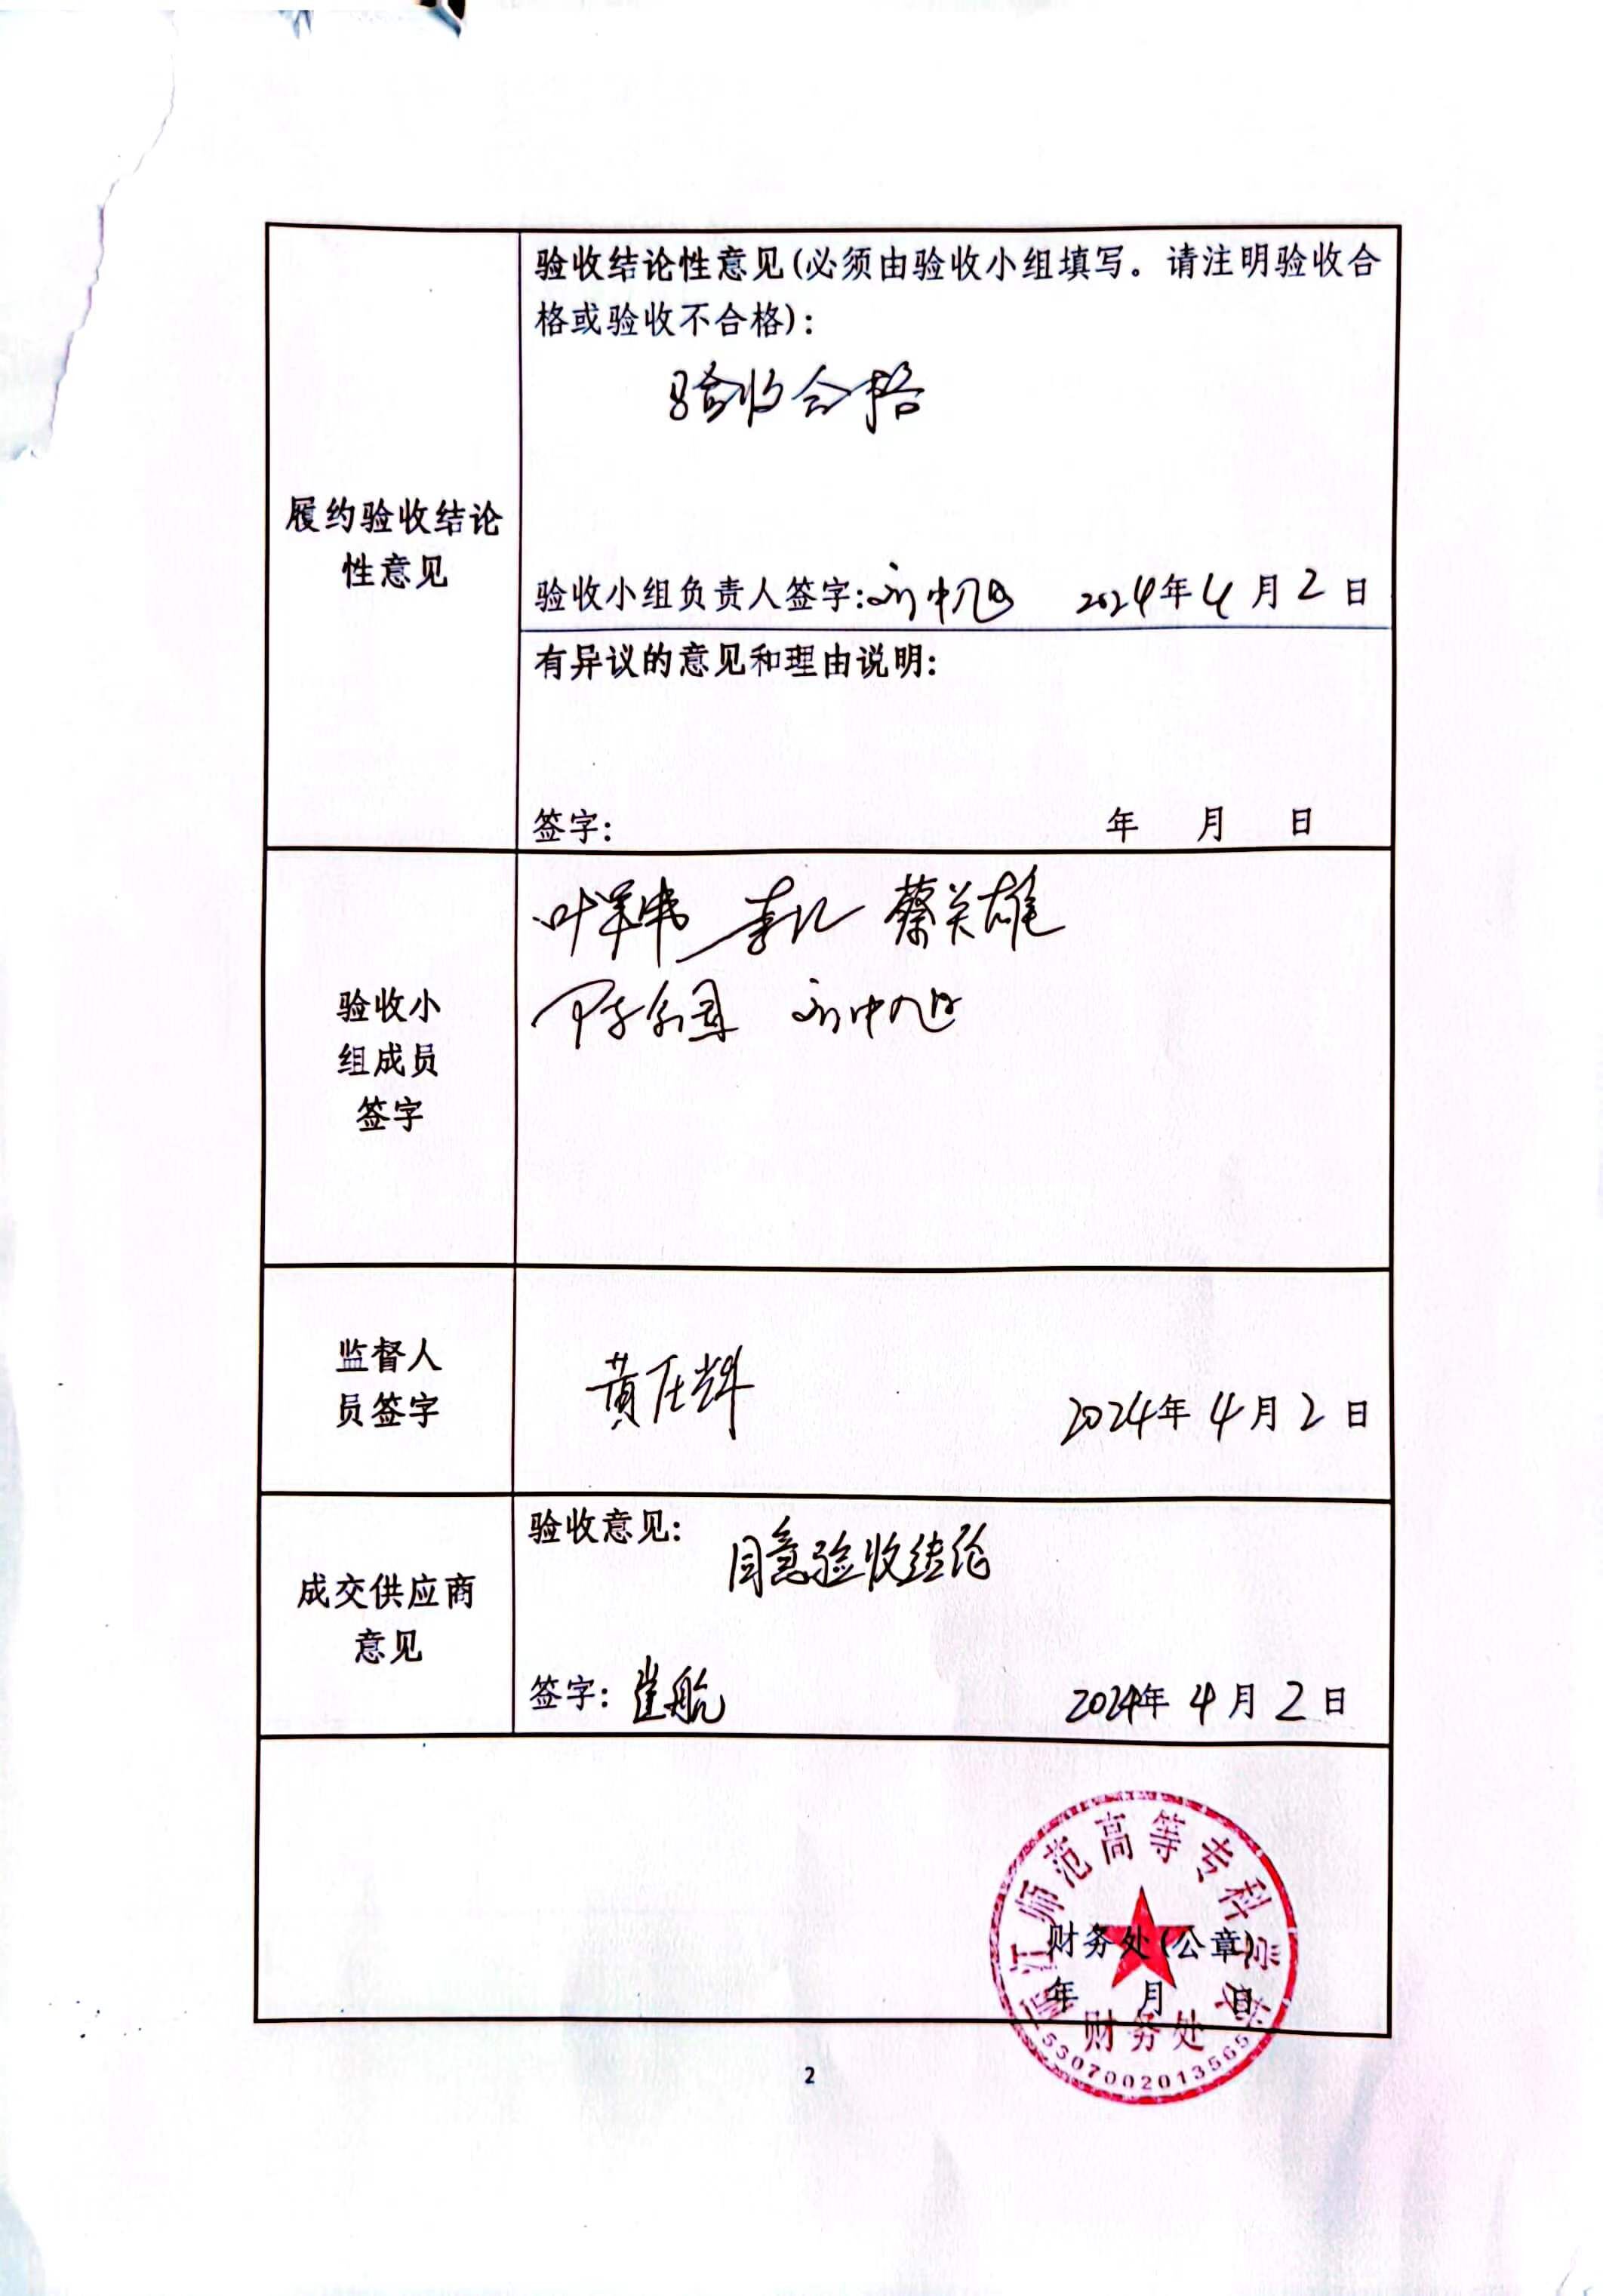 验收结论性意见(必须由验收小组填写。请注明验收合
格或验收不合格):
验收合格
履约验收结论
性意见
验收小组负责人签字:刘中旭 2024年4月2日
有异议的意见和理由说明:
签字: 年 月 日
叶军伟 李 蔡关雄
刘中旭
验收小
组成员
签字
监督人
员签字
黄 辉
2024年4月2日
验收意见: 同意验收结论
成交供应商
意见
签字: 崔航 2024年4月2日
丽江师范高等专科学校
财务处(公章)
年 月 日
财务处
5307002013565
2